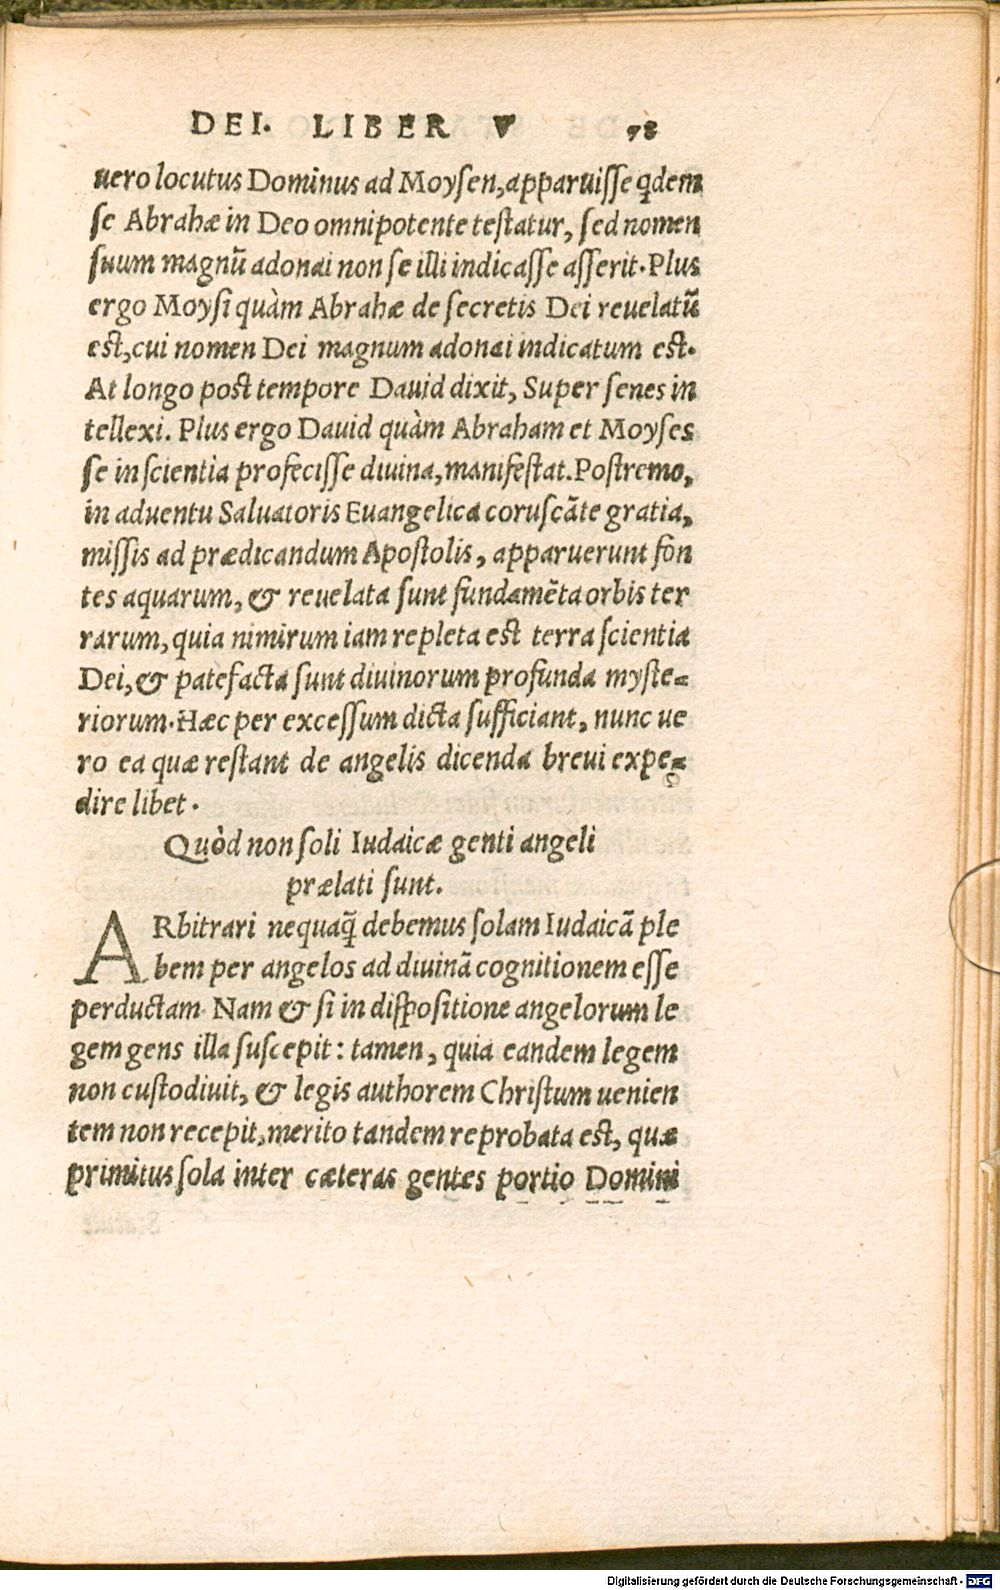 DEI. LIBER V 78
uero locutus Dominus ad Moysen, apparuisse qdem
se Abrahæ in Deo omnipotente testatur, sed nomen
suum magnũ adonai non se illi indicasse asserit. Plus
ergo Moysi quàm Abrahæ de secretis Dei reuelatũ
est, cui nomen Dei magnum adonai indicatum est.
At longo post tempore Dauid dixit, Super senes in
tellexi. Plus ergo Dauid quàm Abraham et Moyses
se in scientia profecisse diuina, manifestat. Postremo,
in aduentu Saluatoris Euangelica coruscãte gratia,
missis ad prædicandum Apostolis, apparuerunt fon
tes aquarum, & reuelata sunt fundamẽta orbis ter
rarum, quia nimirum iam repleta est terra scientia
Dei, & patefacta sunt diuinorum profunda myste=
riorum. Hæc per excessum dicta sufficiant, nunc ue
ro ea quæ restant de angelis dicenda breui expe=
dire libet.
Quòd non soli Iudaicæ genti angeli
prælati sunt.
ARbitrari nequaq̃ debemus solam Iudaicã ple
bem per angelos ad diuinã cognitionem esse
perductam. Nam & si in dispositione angelorum le
gem gens illa suscepit: tamen, quia eandem legem
non custodiuit, & legis authorem Christum uenien
tem non recepit, merito tandem reprobata est, quæ
primitus sola inter cæteras gentes portio Domini
Digitalisierung gefördert durch die Deutsche Forschungsgemeinschaft - DFG